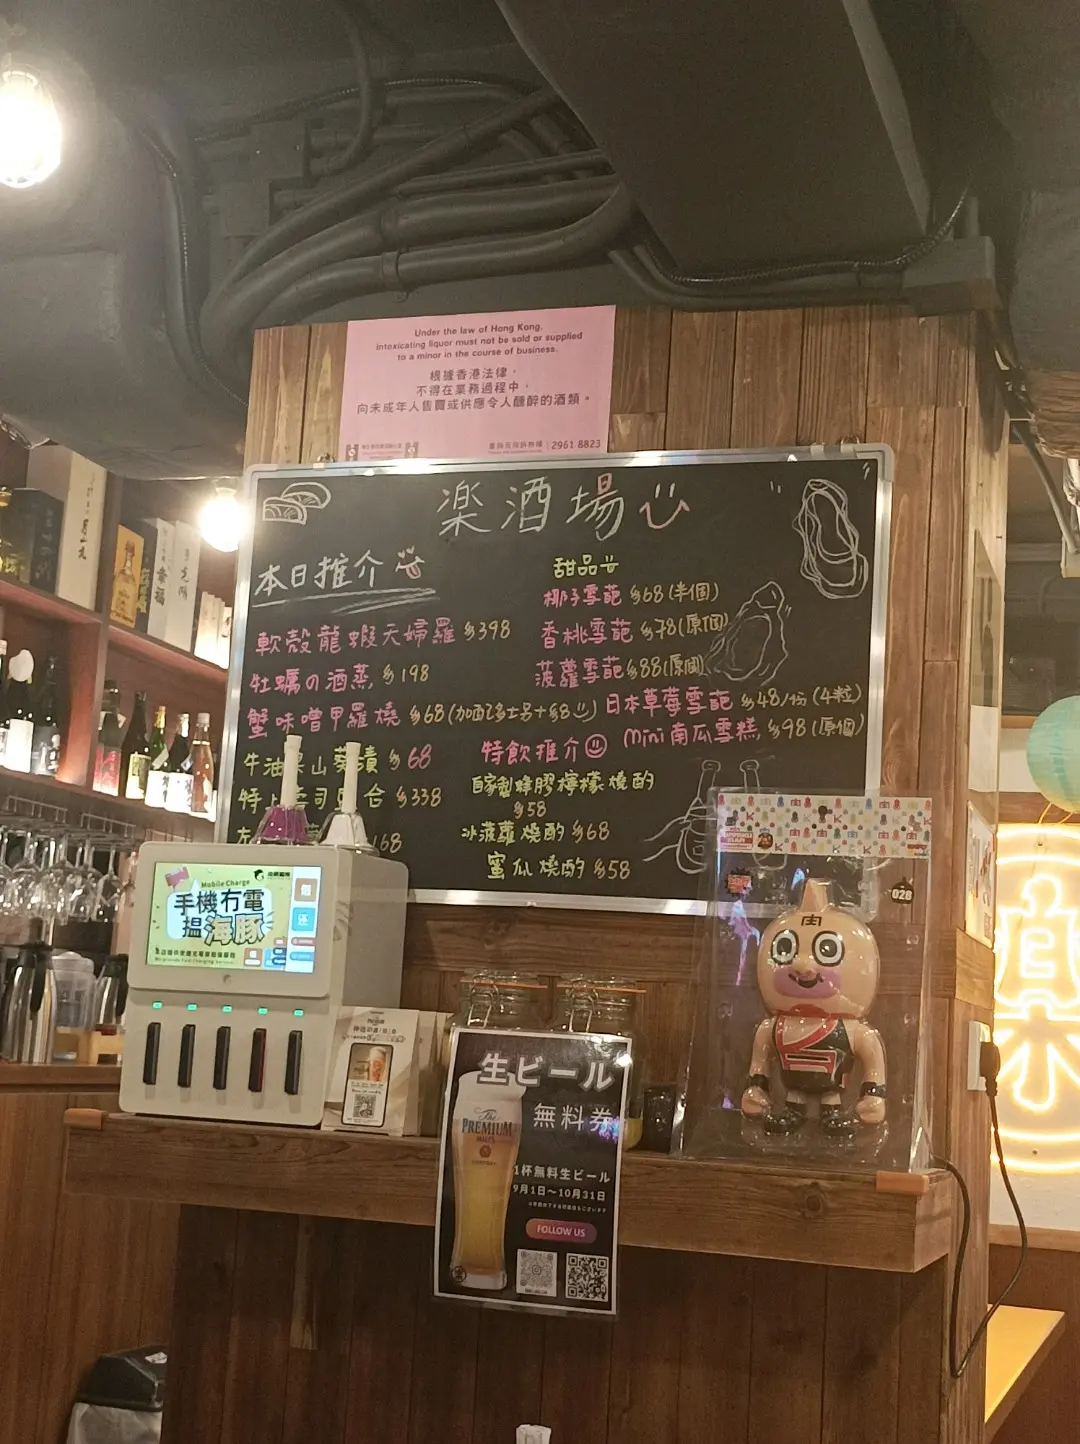 Under the law of Hong Kong,
intoxicating liquor must not be sold or supplied
to a minor in the course of business.
根據香港法律，
不得在業務過程中，
向未成年人售賣或供應令人醺醉的酒類。
2961 8823
楽酒場
本日推介
軟殼龍蝦天婦羅 $398
牡蠣の酒蒸 $198
蟹味噌甲羅燒 $68 (加配多士另+$8)
牛油果山葵漬 $68
特上壽司 合 $338
168
甜品
椰子雪葩 $68 (半個)
香桃雪葩 $78 (原個)
菠蘿雪葩 $88 (原個)
日本草莓雪葩 $48/份 (4粒)
mini南瓜雪糕 $98 (原個)
特飲推介
自家製蜂膠檸檬燒酌
$58
冰菠蘿燒酌 $68
蜜瓜燒酌 $58
Mobile Charge
手機冇電
搵海豚
生ビール
無料券
The
PREMIUM
MALT'S
1杯無料生ビール
9月1日〜10月31日
FOLLOW US
020
肉
楽